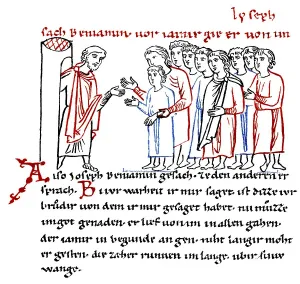 Ioseph
sach Beniamin vor iamir gie er von im
Also Joseph Beniamin gesach. zeden anderen er
sprach. Bi iwer warheit ir mir saget. ist ditze iwer
brůder von dem ir mir gesaget habet. nu muzze
im got genaden. er lief von im in allen gahen.
der iamir in begunde an gen. niht langir moht
er gesten. die zaher runnen im lange. ubir sine
wange.